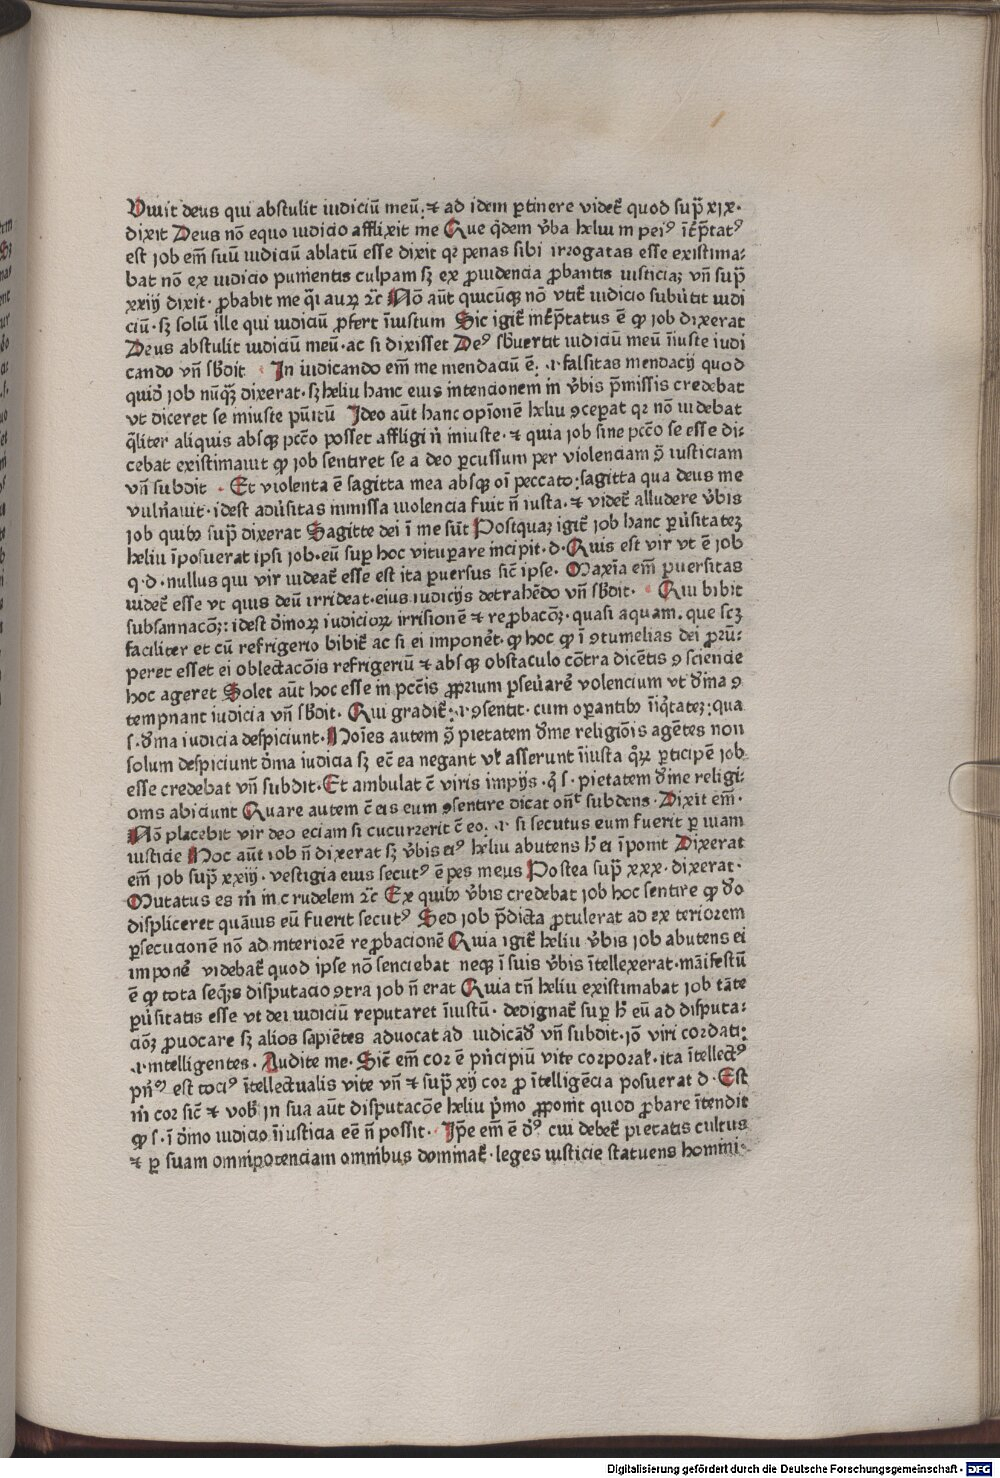 Viuit deus qui abstulit iudiciū meū: ⁊ ad idem ꝑtinere videt᷑ quod sup̄ xıx·
dixit Deus nō equo iudicio afflixit me Que q̇dem v̾ba heliu in peiꝰ īt̾p̄tatꝰ
est job em̄ suū iudiciū ablatū esse dixit qꝛ penas sibi irrogatas esse existima⸗
bat nō ex iudicio punientis culpam sꝫ ex ꝓuidencia ꝓbantis iusticiaꝫ vn̄ sup̄
xxiij dixit· ꝓbabit me q̄i auꝝ ⁊c̄ Nō aūt quicūqꝫ nō vtit᷑ iudicio subu̾tit iudi
ciū· sꝫ solū ille qui iudiciū ꝓfert īiustum Sic igit᷑ int̾p̄tatus ē ꝙ job dixerat
Deus abstulit iudiciū meū· ac si dixisset Deꝰ sb̾uertit iudiciū meū īiuste iudi
cando vn̄ sb̾dit · In iudicando em̄ me mendaciū ē: ·ı· falsitas mendacij quod
quid̾ job nūqꝫ dixerat· sꝫ heliu hanc eius intencionem in v̾bis p̄missis credebat
vt diceret se iniuste pūitū Ideo aūt hanc opīonē heliu ꝯceperat qꝛ nō videbat
q̄liter aliquis absqꝫ pcc̄o posset affligi n̄ iniuste· ⁊ quia job sine pcc̄o se esse di⸗
cebat existimauit ꝙ job sentiret se a deo ꝑcussum per violenciam ꝯ̄ iusticiam
vn̄ subdit · Et violenta ē sagitta mea absqꝫ oī peccato: sagitta qua deus me
vuln̾auit· idest adu̾sitas inmissa violencia fuit n̄ iusta· ⁊ videt᷑ alludere v̾bis
job quibꝫ sup̄ dixerat Sagitte dei ī me sūt Postquaꝫ igit᷑ job hanc ꝑu̾sitateꝫ
heliu īposuerat ipsi job· eū sup̲ hoc vituꝑare incipit· d· Quis est vir vt ē job
q· d· nullus qui vir videat᷑ esse est ita ꝑuersus sic̄ ipse· Maxīa em̄ ꝑuersitas
videt᷑ esse vt quis deū irrideat· eius iudicijs detrahēdo vn̄ sb̾dit· · Qui bibit
subsannacōꝫ: idest diuīoꝝ iudicioꝝ irrisionē ⁊ reꝓbacōꝫ· quasi aquam. que scꝫ
faciliter et cū refrigerio bibit᷑ ac si ei imponet̾· ꝙ hoc ꝙ ī ꝯtumelias dei ꝓrū⸗
peret esset ei oblectacōis refrigeriū ⁊ absqꝫ obstaculo cōtra dicētis ꝯsciencie
hoc ageret Solet aūt hoc esse in pcc̄is ꝓprium ꝑseu̾are̾ volencium vt d̾ina ꝯ
tempnant iudicia vn̄ sb̾dit· Qui gradit᷑: ·ı· ꝯsentit· cum oꝑantibꝫ īiq̇tateꝫ: qua
s· d̾ina iudicia despiciunt· Hoīes autem ꝯ̄ pietatem d̾ine religiōis agētes non
solum despiciunt d̾ina iudicia sꝫ ec̄ ea negant vl̾ asserunt īiusta q̇rꝝ ꝑticipē job
esse credebat vn̄ subdit· Et ambulat c̄ viris impijs· q̇ s· pietatem d̾ine religi⸗
onis abiciunt Quare autem c̄ eis eum ꝯsentire dicat on̄t subdens· Dixit em̄·
Nō placebit vir deo eciam si cucurrerit c̄ eo: ·ı· si secutus eum fuerit ꝑ uiam
iusticie Hoc aūt job n̄ dixerat sꝫ v̾bis eiꝰ heliu abutens h̾ ei īponit Dixerat
em̄ job sup̄ xxiij· vestigia eius secutꝰ ē pes meus Postea sup̄ xxx· dixerat·
Mutatus es m̄ in crudelem ⁊c̄ Ex quibꝫ v̾bis credebat job hoc sentire ꝙ d̾o
displiceret quāuis eū fuerit secutꝰ Sed job p̄dicta ꝓtulerat ad exteriorem
ꝑsecucionē nō ad interiorē reꝓbacionē Quia igit᷑ heliu v̾bis job abutens ei
imponē videbat᷑ quod ipse nō senciebat neqꝫ ī suis v̾bis ītellexerat· māifestū
ē ꝙ tota seqn̄s disputacio ꝯtra job n̄ erat Quia tn̄ heliu existimabat job tāte
ꝑu̾sitatis esse vt dei iudiciū reputaret īiustū· dedignat᷑ sup̲ h̾ eū ad disputa⸗
cōꝫ ꝓuocare sꝫ alios sapiētes aduocat ad iudicād̾ vn̄ subdit· iō viri cordati:
·ı· intelligentes· Audite me· Sic̄ em̄ cor ē pn̾cipiū vite corporal̾· ita ītellectꝰ
pn̾ꝰ est tociꝰ ītellectualis vite vn̄ ⁊ sup̄ xij cor ꝓ ītelligēcia posuerat d· Est
m̄ cor sic̄ ⁊ vob̾ In sua aūt disputacōe heliu p̾mo ꝓponit quod ꝓbare ītendit
ꝙ s· ī d̾ino iudicio īiusticia eē n̄ possit· · Ip̄e em̄ ē d̾ꝰ cui debet᷑ pietatis cultus
⁊ ꝑ suam omnipotenciam omnibus dominat᷑· leges iusticie statuens homini⸗
Digitalisierung gefördert durch die Deutsche Forschungsgemeinschaft · DFG